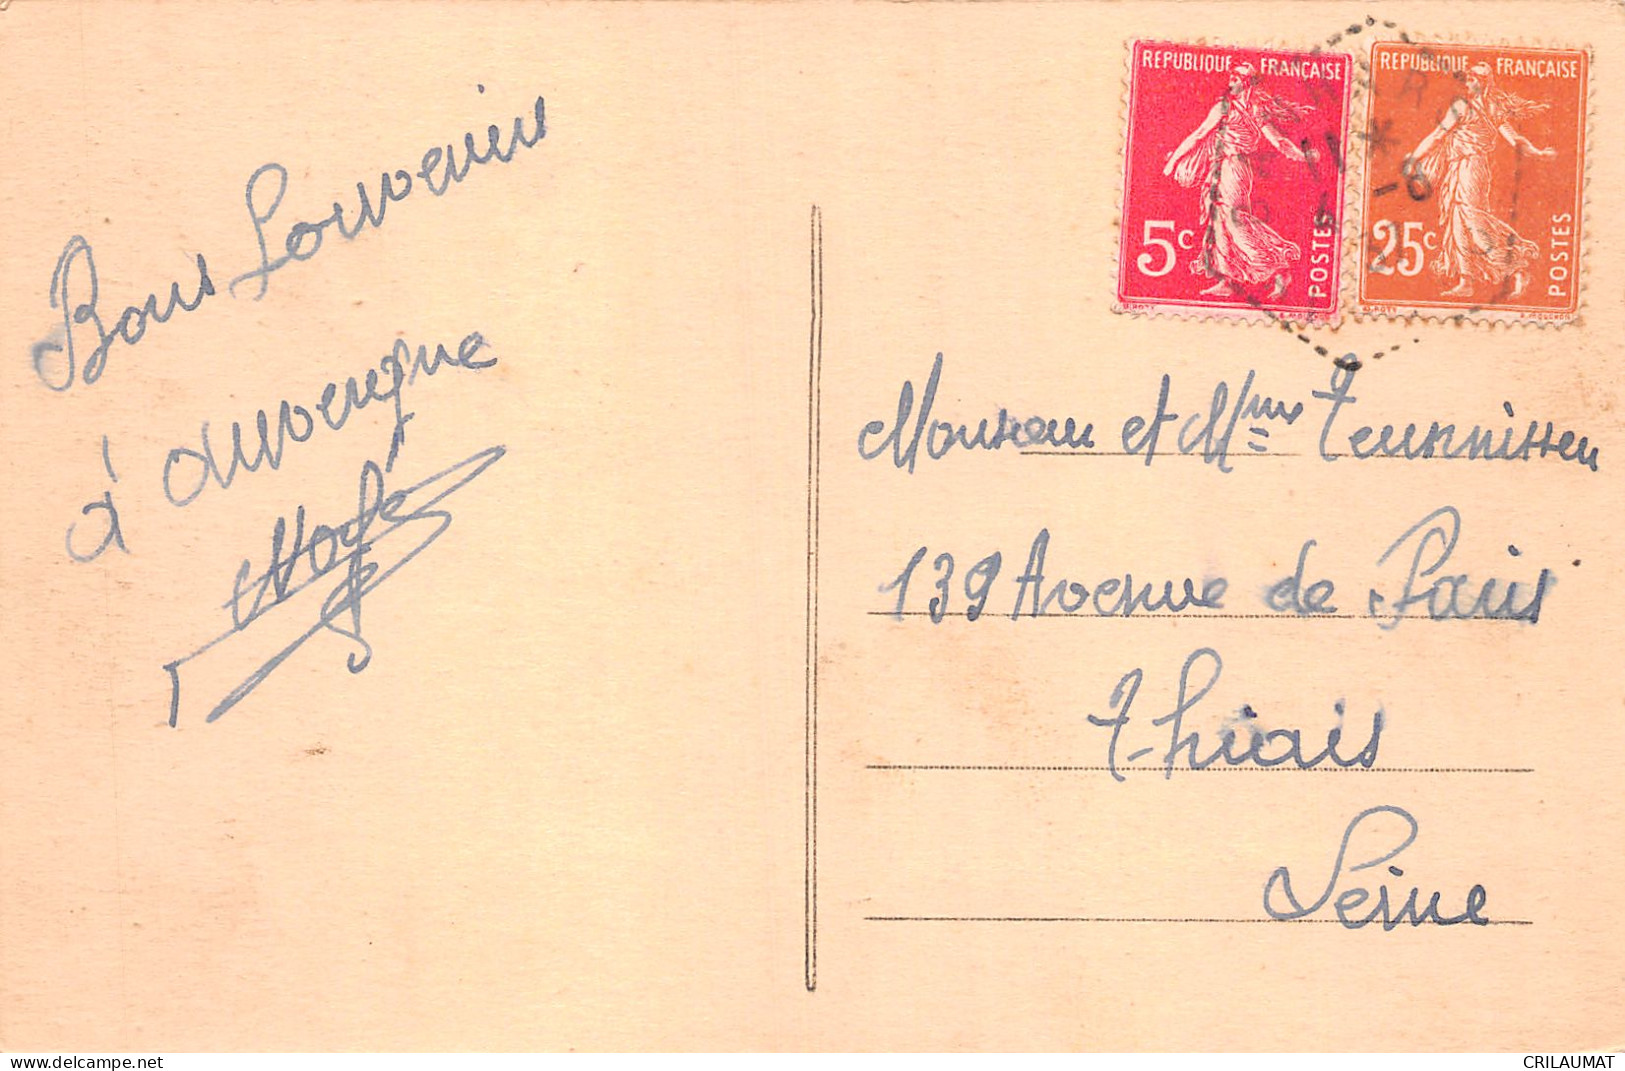 Bons Souvenirs
d'auvergne
REPUBLIQUE FRANÇAISE
5c
POSTES
REPUBLIQUE FRANÇAISE
25c
POSTES
11 *
-8
Monsieur et Mme Teunnissen
139 Avenue de Paris
Thiais
Seine
CRILAUMAT